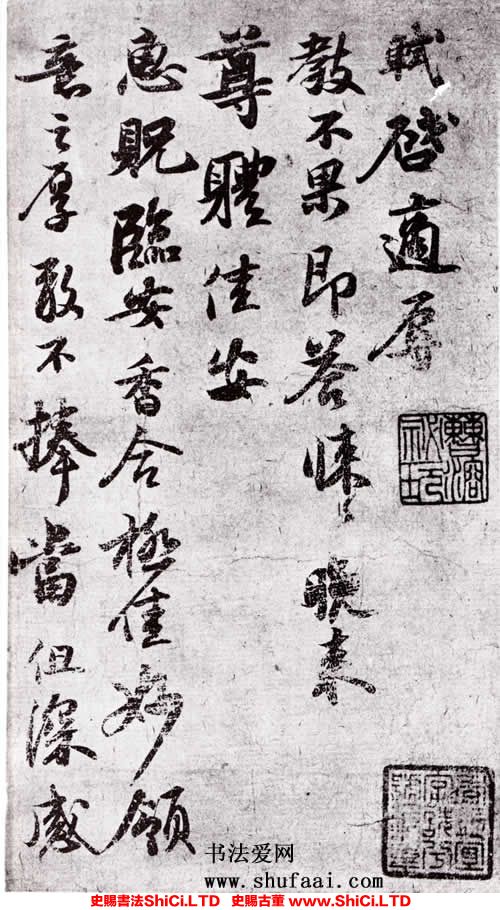 軾啓適辱
教不果即荅悚〻晚来
尊體佳安
惠貺臨安香合極佳妙領
意之厚敢不捧當但深感
书法爱网
www.shufaai.com
史賜書法ShiCi.LTD 史賜古董 www.ShiCi.LTD